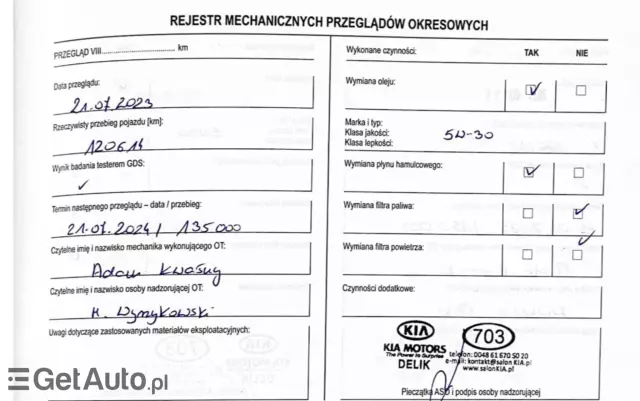 REJESTR MECHANICZNYCH PRZEGLĄDÓW OKRESOWYCH
PRZEGLĄD VIII km
Data przeglądu:
21.07.2023
Rzeczywisty przebieg pojazdu [km]:
120614
Wynik badania testerem GDS:
Termin następnego przeglądu – data / przebieg:
21.07.2024 / 135000
Czytelne imię i nazwisko mechanika wykonującego OT:
Adam
Czytelne imię i nazwisko osoby nadzorującej OT:
Uwagi dotyczące zastosowanych materiałów eksploatacyjnych:
Wykonane czynności: TAK NIE
Wymiana oleju:
Marka i typ:
Klasa jakości:
Klasa lepkości:
5W-30
Wymiana płynu hamulcowego:
Wymiana filtra paliwa:
Wymiana filtra powietrza:
Czynności dodatkowe:
KIA 703
KIA MOTORS
The Power to Surprise
DELIK
telefon: 0048 61 670 50 20
e-mail: kontakt@salonKIA.pl
www.salonKIA.pl
Pieczątka ASO i podpis osoby nadzorującej
GetAuto.pl